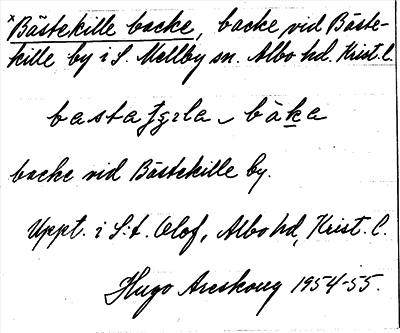 ×Bästekille backe, backe vid Bäste-
kille by i S. Mellby sn. Albo hd. Krist. l.
bastaɟɀɪla bàka
backe vid Bästekille by.
Uppt. i S:t. Olof, Albo hd, Krist. l.
Hugo Areskoug 1954-55.